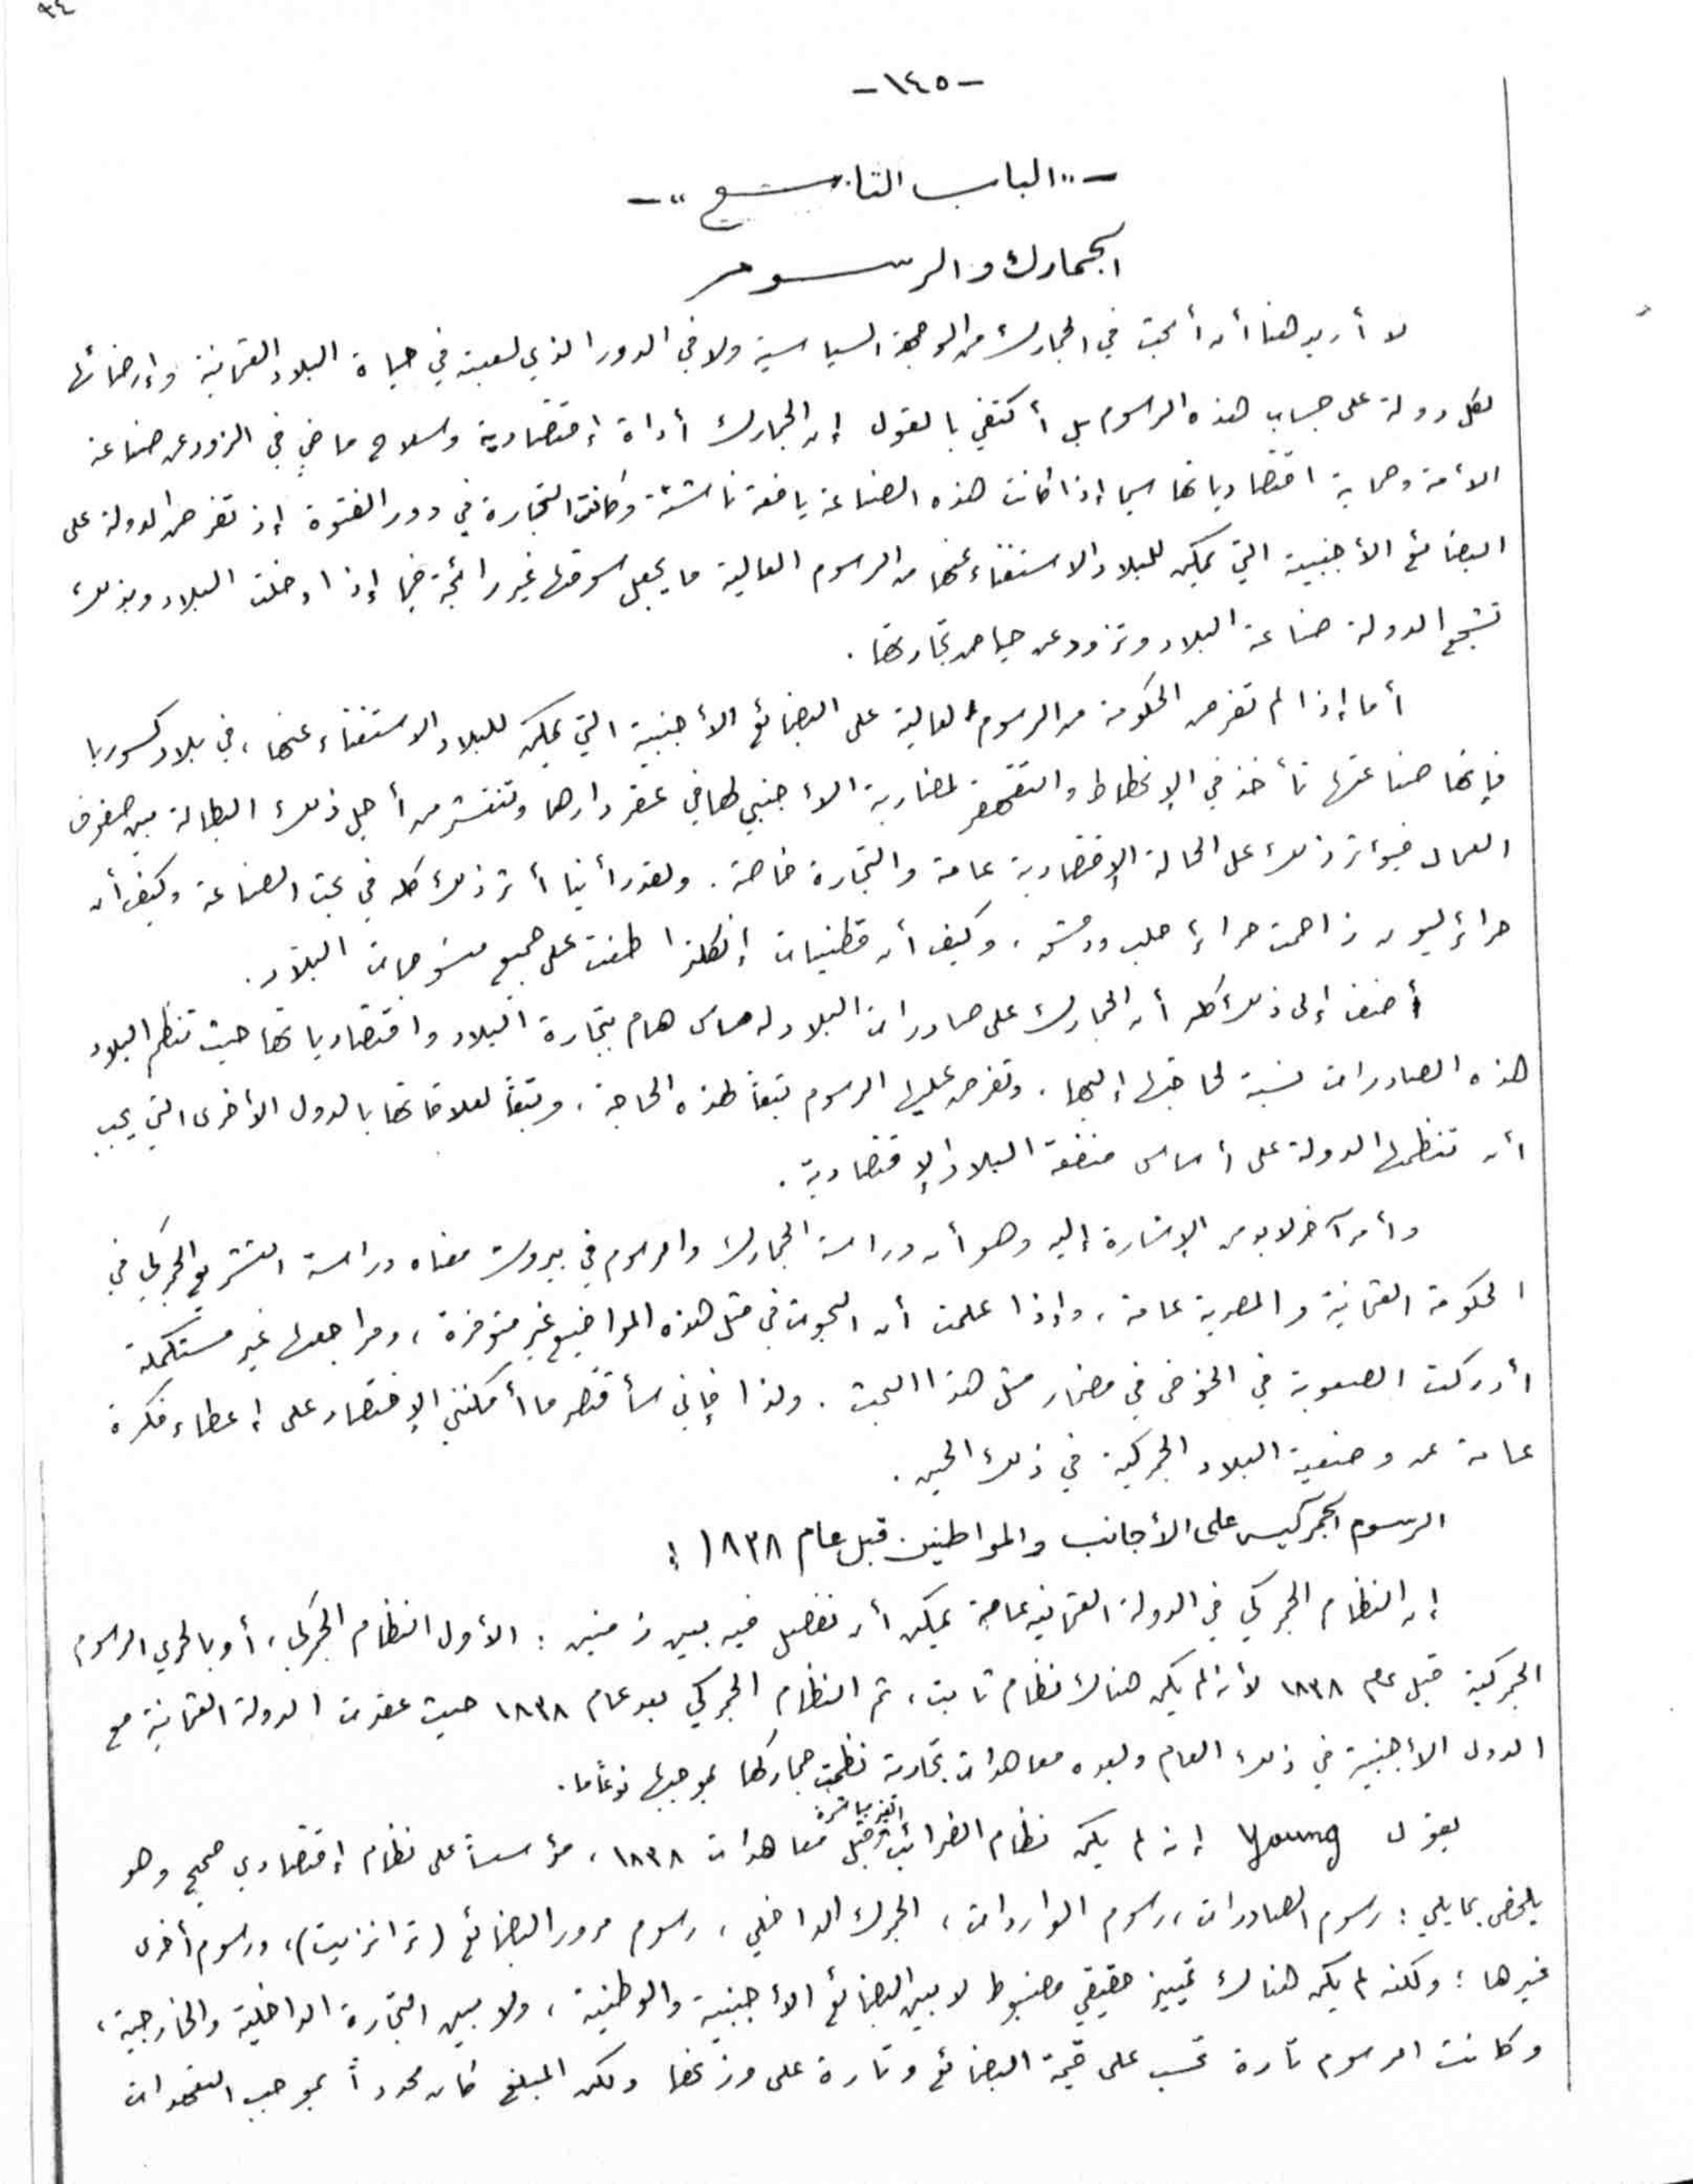 ٩٤
-١٤٥-
-"الباب التاسع"-
الجمارك والرسوم
لا أريد هنا أن أبحث في الجمارك من الوجهة السياسية ولا في الدور الذي لعبته في حياة البلاد العثمانية وإرضائها
لكل دولة على حساب هذه الرسوم بل أكتفي بالقول إن الجمارك أداة إقتصادية وسلاح ماضٍ في الزود عن صناعة
الأمة وحماية اقتصادياتها سيما إذا كانت هذه الصناعة يافعة ناشئة وكانت التجارة في دور الفتوة إذ تفرض الدولة على
البضائع الأجنبية التي يمكن للبلاد الاستغناء عنها من الرسوم العالية ما يجعل سوقها غير رائجة فيما إذا دخلت البلاد وبذلك
تشجع الدولة صناعة البلاد وتزود عن حياض تجارتها .
أما إذا لم تفرض الحكومة من الرسوم العالية على البضائع الأجنبية التي يمكن للبلاد الاستغناء عنها ، في بلاد كسوريا
فإنها صناعتها تأخذ في الإنحطاط والتقهقر لمضاربة الأجنبي لها في عقر دارها وتنتشر من أجل ذلك البطالة بين صفوف
العمال فيؤثر ذلك على الحالة الإقتصادية عامة والتجارة خاصة . ولقد رأينا أثر ذلك كله في بحث الصناعة وكيف أن
حرائر ليون زاحمت حرائر حلب ودمشق ، وكيف أن قطنيات إنكلترا طغت على جميع منسوجات البلاد .
أضف إلى ذلك كله أن الجمارك على صادرات البلاد له مساس هام بتجارة البلاد واقتصادياتها حيث تنظم البلاد
هذه الصادرات نسبة لحاجتها إليها . وتفرض عليها الرسوم تبعاً لهذه الحاجة ، وتبعاً لعلاقاتها بالدول الأخرى التي يجب
أن تنظمها الدولة على أساس منفعة البلاد الإقتصادية .
وأمر آخر لابد من الإشارة إليه وهو أن دراسة الجمارك والرسوم في بيروت معناه دراسة التشريع الجمركي في
الحكومة العثمانية والمصرية عامة ، وإذا علمت أن البحوث في مثل هذه المواضيع غير متوفرة ، ومراجعها غير مستكملة
أدركت الصعوبة في الخوض في مضمار مثل هذا البحث . ولذا فإني سأقتصر ما أمكنني الإقتصار على إعطاء فكرة
عامة عن وضعية البلاد الجمركية في ذلك الحين .
الرسوم الجمركية على الأجانب والمواطنين قبل عام ١٨٣٨ :
إن النظام الجمركي في الدولة العثمانية عامة يمكن أن نفصل فيه بين زمنين : الأول النظام الجمركي ، أو بالحري الرسوم
الجمركية قبل عام ١٨٣٨ لأنه لم يكن هناك نظام ثابت ، ثم النظام الجمركي بعد عام ١٨٣٨ حيث عقدت الدولة العثمانية مع
الدول الأجنبية في ذلك العام وبعده معاهدات تجارية نظمت جماركها بموجبها نوعاً ما .
يقول Young إنه لم يكن نظام الضرائب الغير مباشرة قبل معاهدات ١٨٣٨ ، مؤسساً على نظام إقتصادي صحيح وهو
يلخص بما يلي : رسوم الصادرات ، رسوم الواردات ، الجمرك الداخلي ، رسوم مرور البضائع (ترانزيت) ، ورسوم أخرى
غيرها ؛ ولكنه لم يكن هناك تمييز حقيقي مضبوط لا بين البضائع الأجنبية والوطنية ، ولا بين التجارة الداخلية والخارجية ،
وكانت الرسوم تارة تحسب على قيمة البضائع وتارة على وزنها ولكن المبلغ كان محدداً بموجب التعهدات